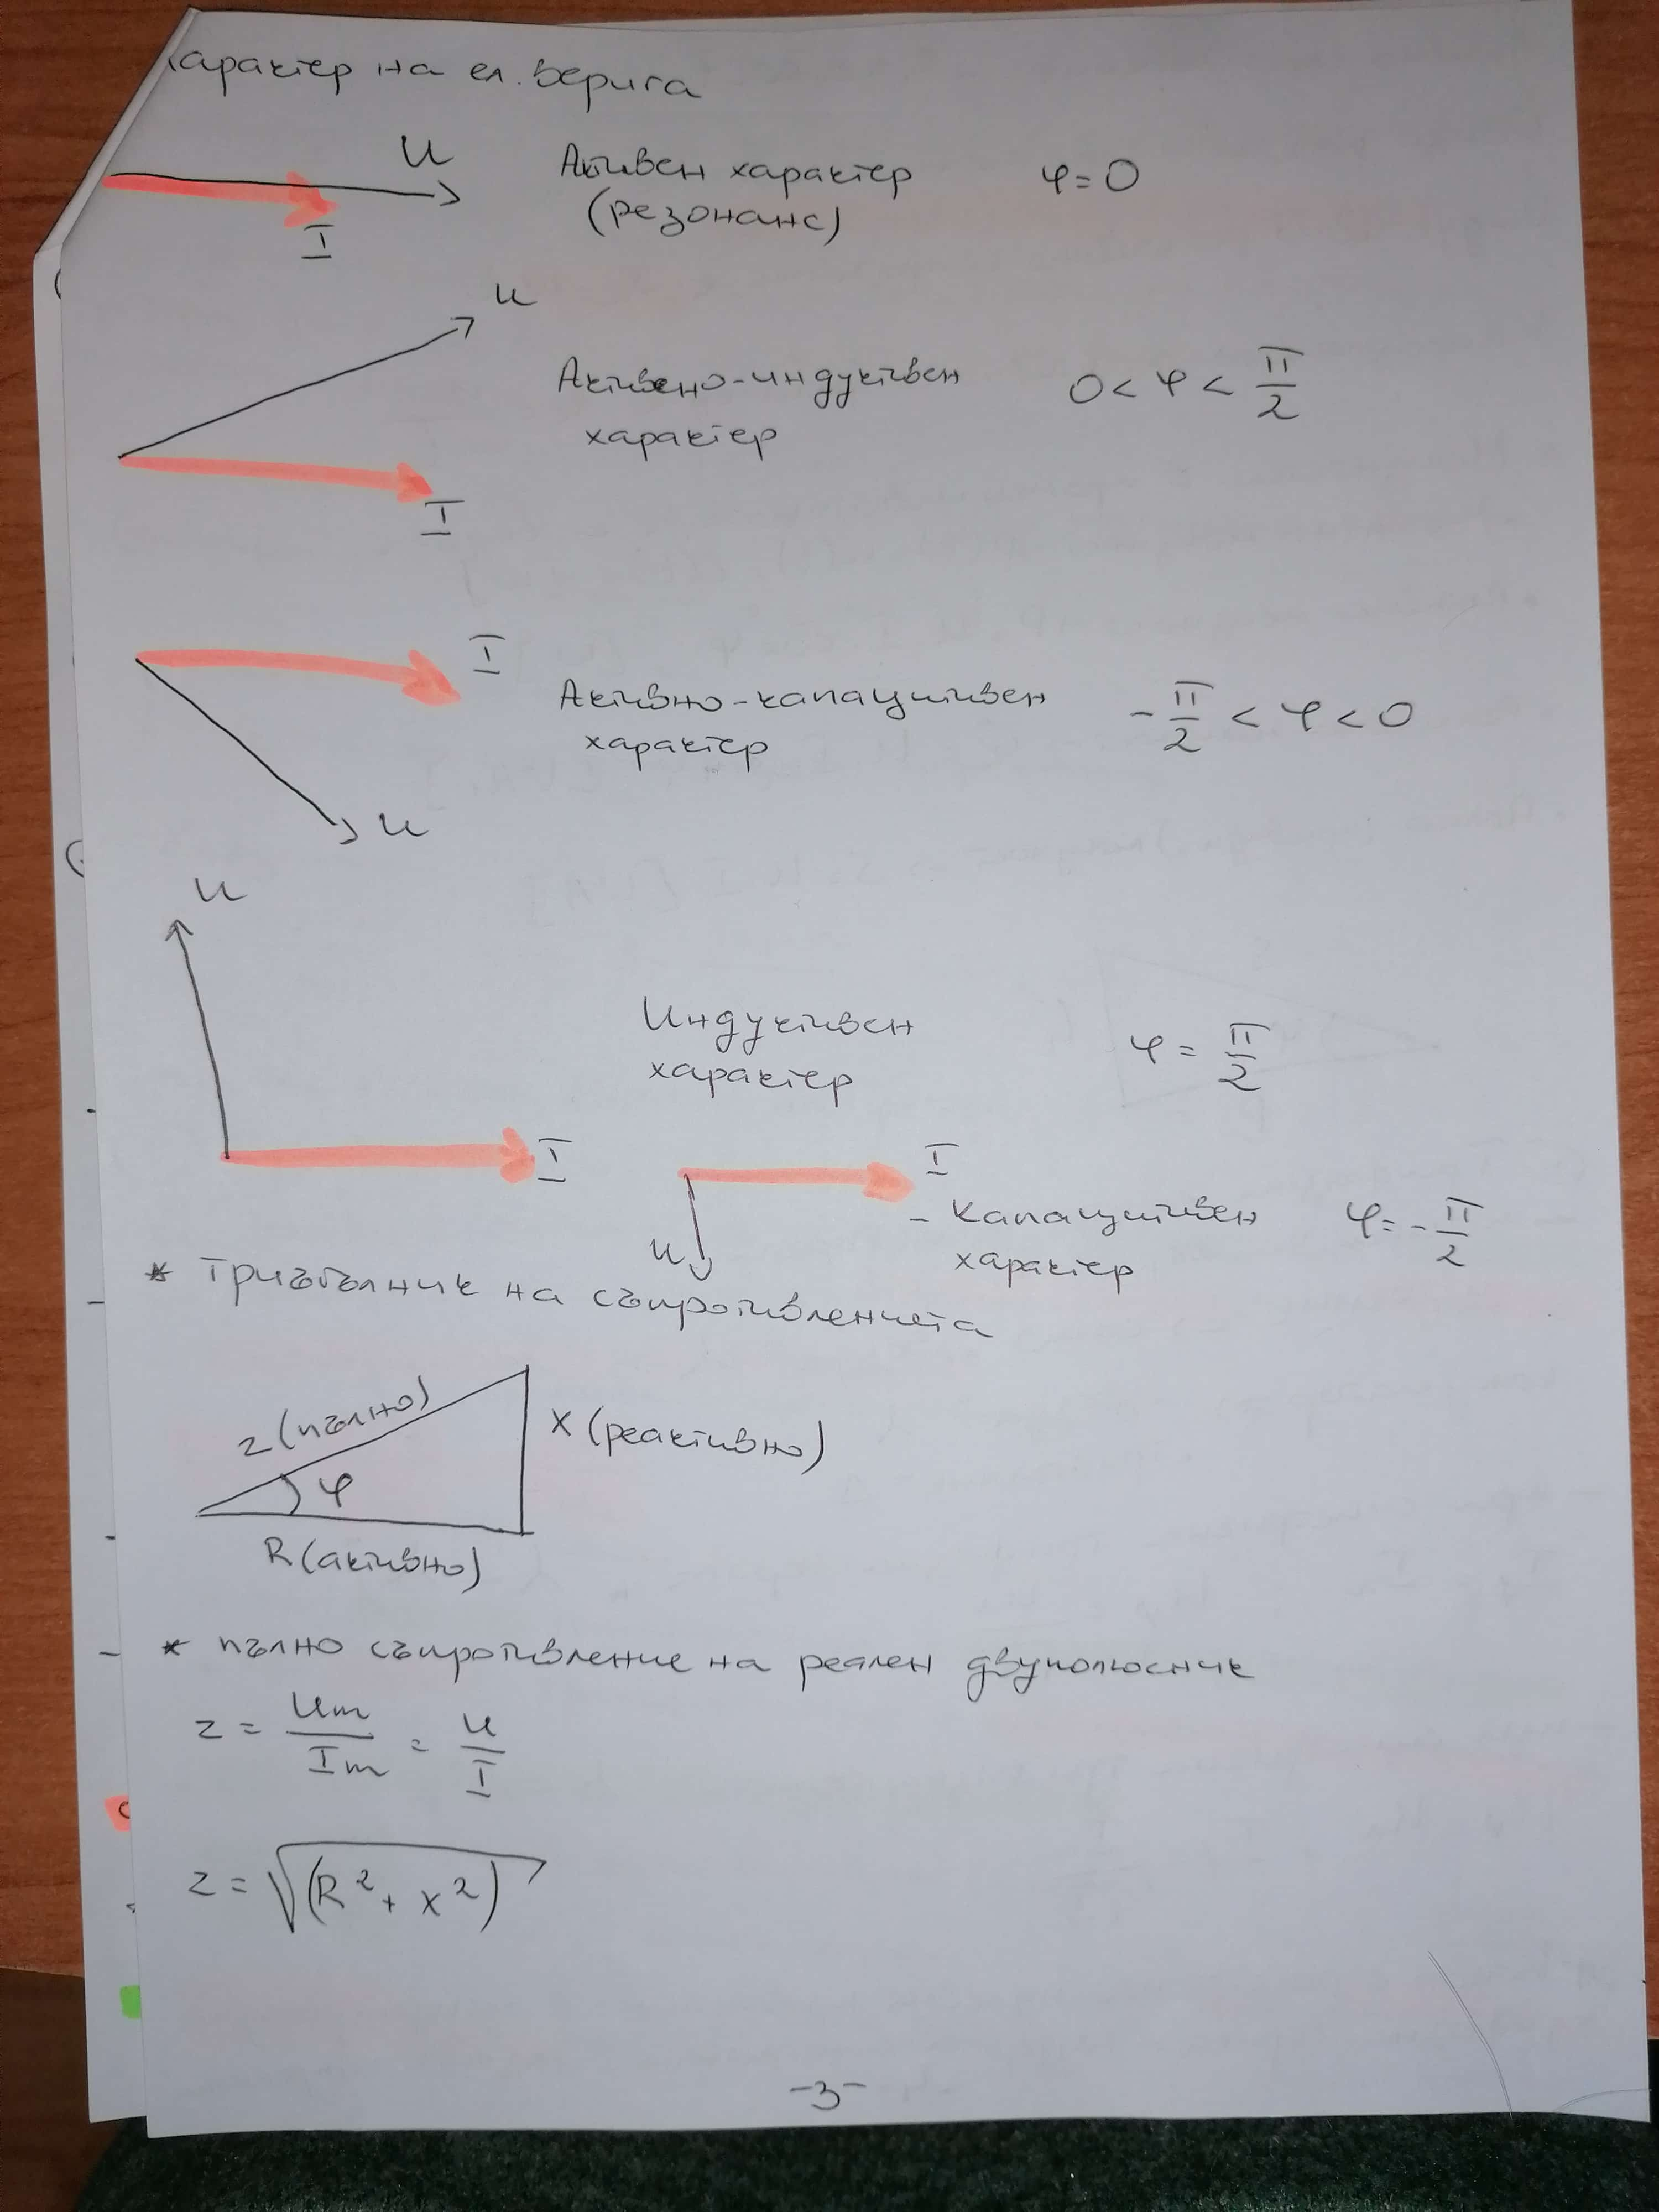 Характер на ел. верига
U
Активен характер
φ = 0
(резонанс)
I
U
Активено-индуктивен
характер
0 < φ < π/2
I
I
Активно-капацитивен
характер
-π/2 < φ < 0
U
U
Индуктивен
характер
φ = π/2
I
I
- Капацитивен
характер
φ = -π/2
U
* Триъгълник на съпротивленията
z (пълно)
X (реактивно)
φ
R (активно)
* пълно съпротивление на реален двуполюсник
z = Um/Im = U/I
z = √(R² + x²)
-3-